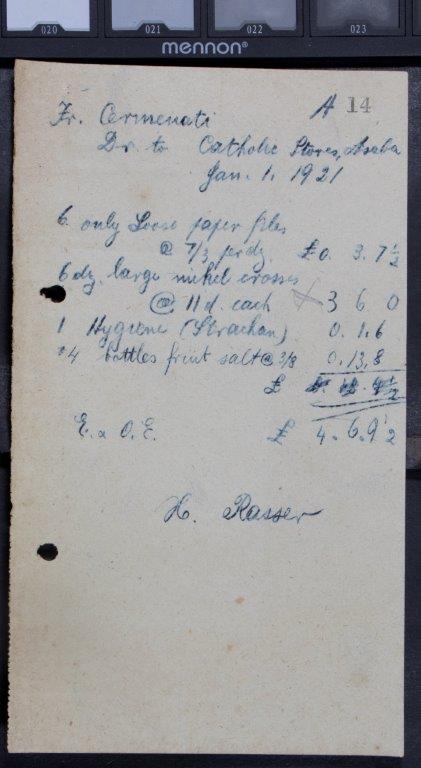 020 021 022 023
mennon®
A 14
Fr. Cermenati
Dr. to Catholic Stores, Asaba
Jan. 1. 1921
6 only Loose paper files
@ 7/3 per dz. £0. 3. 7½
6 dz. large nickel crosses
@ 11d. each 3 6 0
1 Hygiene (Strachan) 0. 1. 6
4 bottles fruit salt @ 3/8 0. 13. 8
£
E. & O. E. £ 4. 6. 9½
H. Rasser